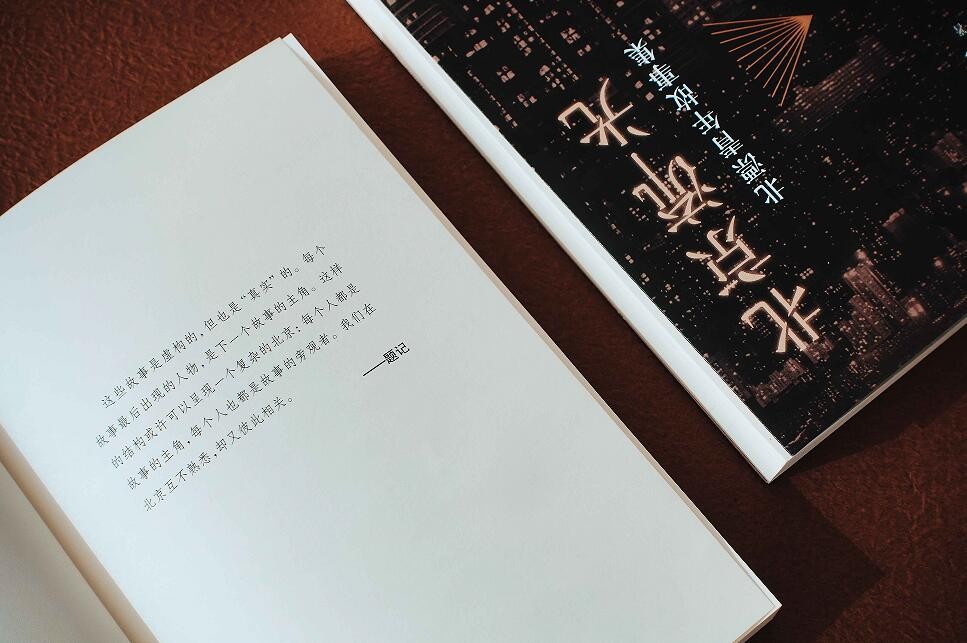 这些故事是虚构的，但也是“真实”的。每个
故事最后出现的人物，是下一个故事的主角。这样
的结构或许可以呈现一个复杂的北京：每个人都是
故事的主角，每个人也都是故事的旁观者。我们在
北京互不熟悉，却又彼此相关。
——题记
北京流光
北漂青年故事集